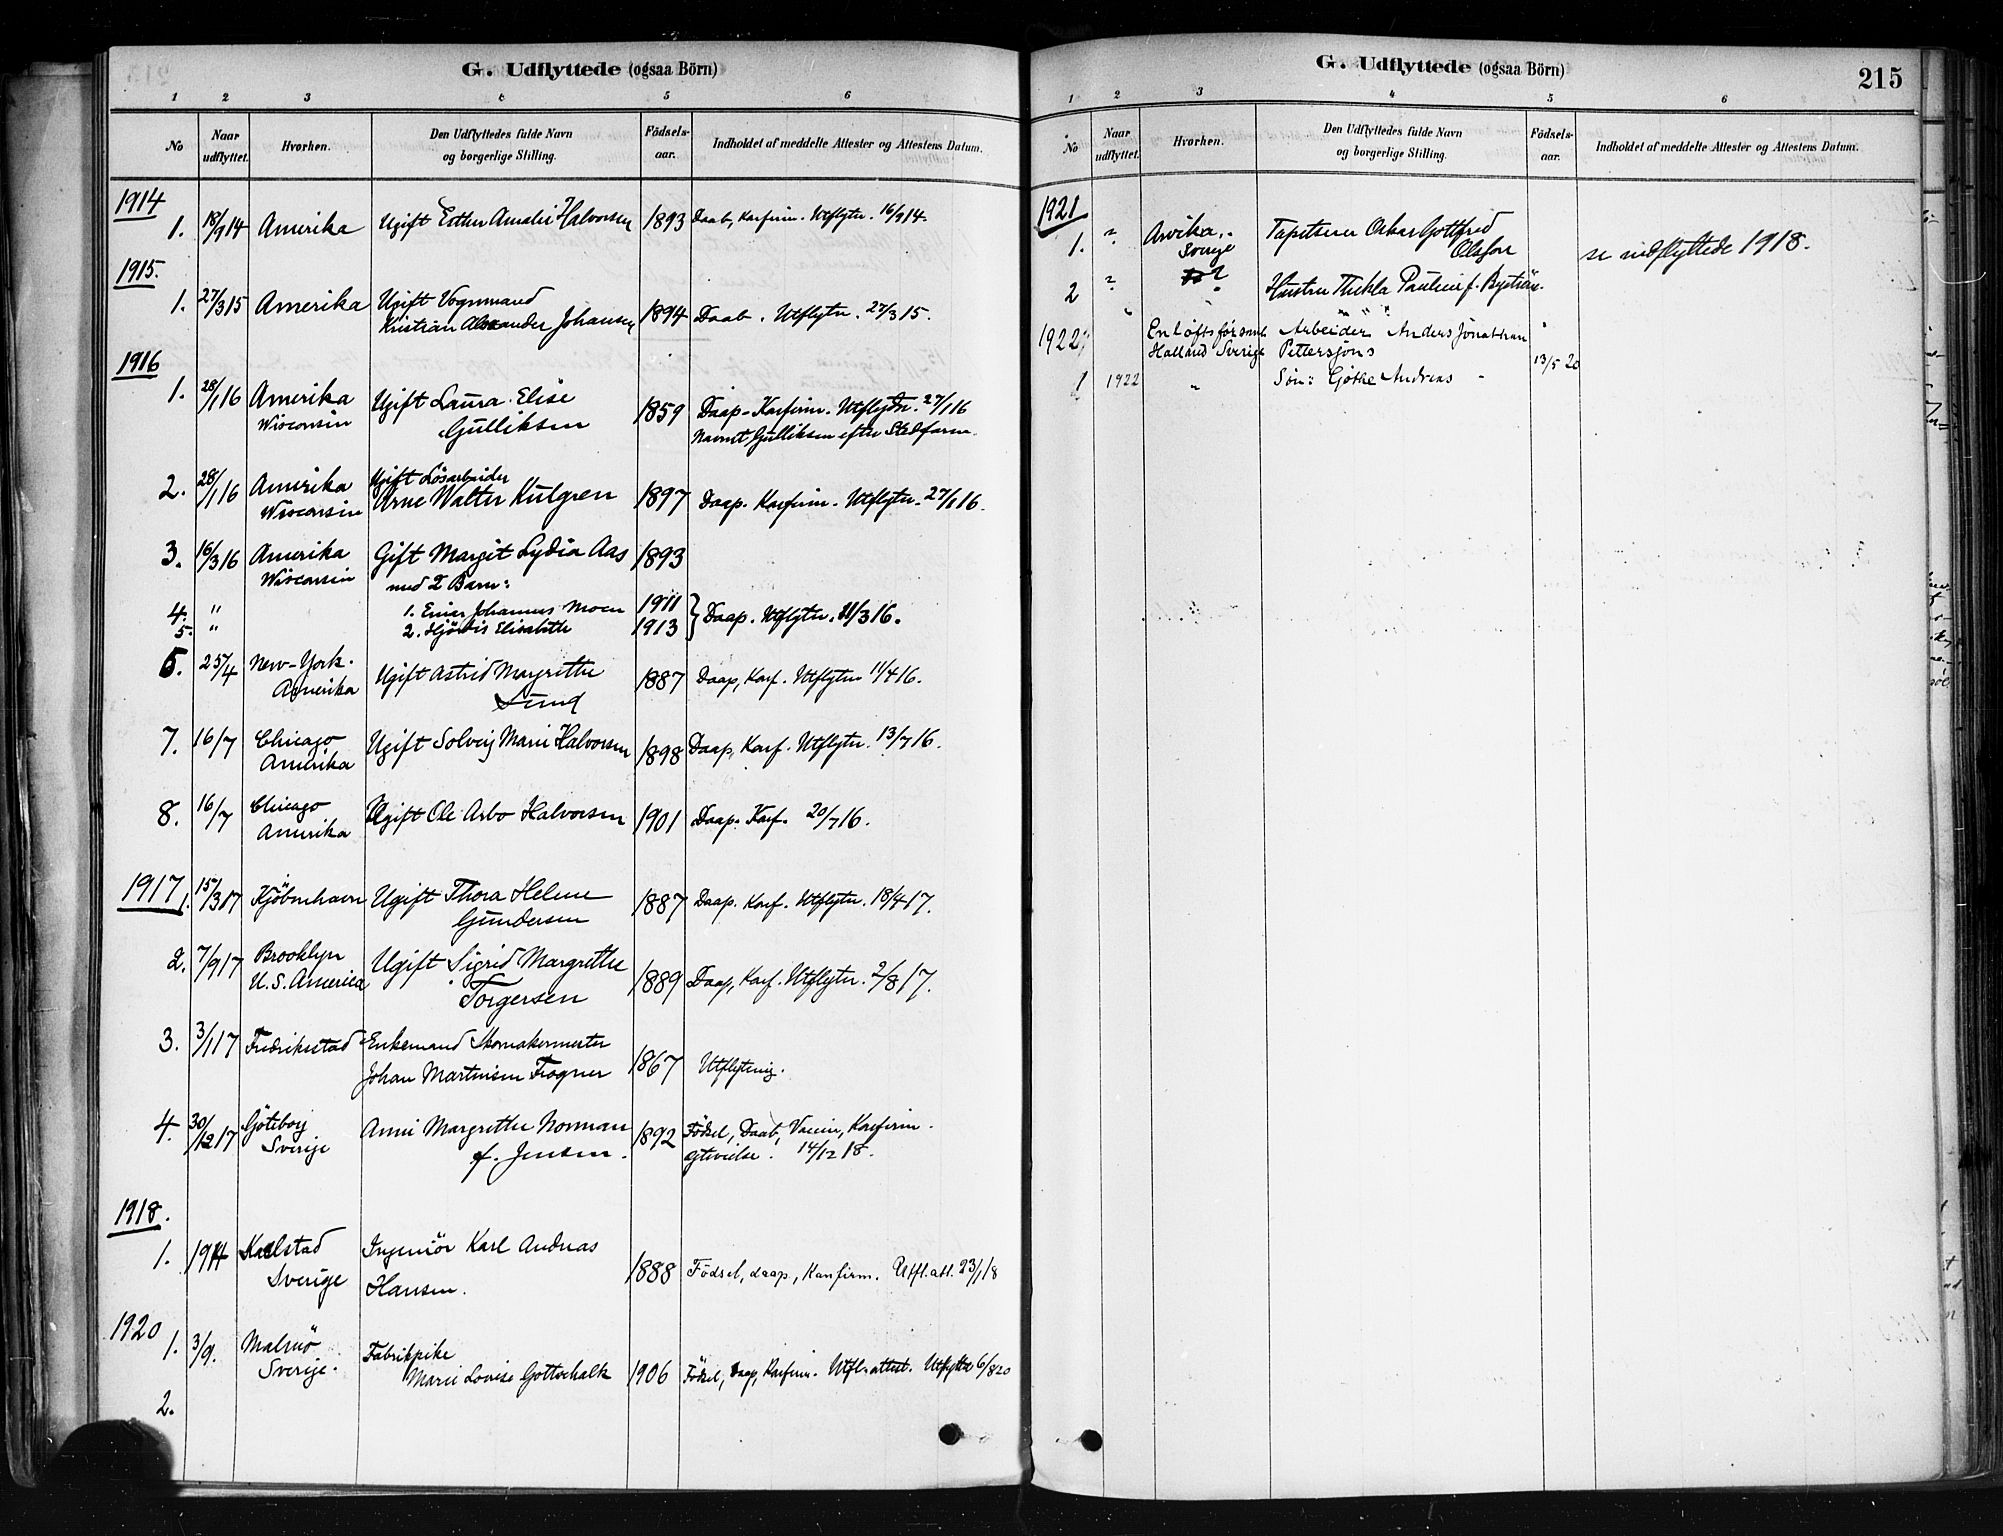 G. Udflyttede (ogsaa Börn)
1 2 3 4 5 6
No Naar udflyttet. Hvorhen. Den Udflyttedes fulde Navn og borgerlige Stilling. Födsels-aar. Indholdet af meddelte Attester og Attestens Datum.
1914
1. 18/9 14 Amerika Ugift Esther Amalie Halvorsen 1893 Daab, Konfirm. Utflytn. 16/9 14.
1915.
1. 27/3 15 Amerika Ugift Vognmand
Kristian Alexander Johansen 1894 Daab. Utflytn. 27/3 15.
1916
1. 28/1 16 Amerika Ugift Laura Elise 1859 Daap-Konfirm. Utflytn. 27/1 16
Wisconsin Gulliksen Navnet Gulliksen efter Stedfaren.
2. 28/1 16 Amerika Ugift Lösarbeider
Wisconsin Arne Walter Kulgren 1897 Daap. Konfirm. Utflytn. 27/1 16.
3. 16/3 16 Amerika Gift Margit Lydia Aas 1893
Wisconsin med 2 Barn:
4. " 1. Einar Johannes Moen 1911 } Daap. Utflytn. 11/3 16.
5. " 2. Hjördis Elisabeth 1913
6. 25/4 New-York. Ugift Astrid Margrethe 1887 Daap, Konf. Utflytn 11/4 16.
Amerika Lund
7. 16/7 Chicago Ugift Solveig Marie Halvorsen 1898 Daap, Konf. Utflytn. 13/7 16.
Amerika
8. 16/7 Chicago Ugift Ole Arbo Halvorsen 1901 Daap. Konf. 20/7 16.
Amerika
1917
1. 15/3 17 Kjöbenhavn Ugift Thora Helene 1887 Daap. Konf. Utflytn. 18/4 17.
Gundersen
2. 7/9 17 Brooklyn Ugift Sigrid Margrethe 1889 Daap, Konf. Utflytn. 2/8 17.
U.S. America Torgersen
3. 3/1 17 Fredriksstad Enkemand Skomakermester
Johan Martinsen Frogner 1867 Utflytning.
4. 30/12 17 Göteborg Anne Margrethe Norman 1892 Födsel, Daab, Vaccin, Konfirm.
Sverige f. Jensen. 14/12 18.
1918.
1. 1914 Karlstad Ingeniör Karl Andreas 1888 Födsel, daap, Konfirm. Utfl.att. 23/1 18
Sverige Hansen.
1920
1. 3/9. Malmö Fabrikpike
Sverige. Marie Lovise Gottschalk 1906 Födsel, Daap, Konfirm. Utfl.attest. Utflyttet 6/8 20
2.
G. Udflyttede (ogsaa Börn) 215
1 2 3 4 5 6
No Naar udflyttet. Hvorhen. Den Udflyttedes fulde Navn og borgerlige Stilling. Födsels-aar. Indholdet af meddelte Attester og Attestens Datum.
1921
1. ? Arvika. Tapetserer Oskar Gottfred
Sverige Olsson se indflyttede 1918.
2 ? ? Hustru Thekla Pauline f. Byström.
1922 Halland Sverige Arbeider Anders Jonathan
Petterssons
1 1922 " Søn: Gøthe Andreas 13/5 20